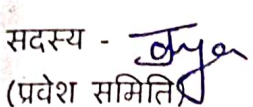 सदस्य -
(प्रवेश समिति)